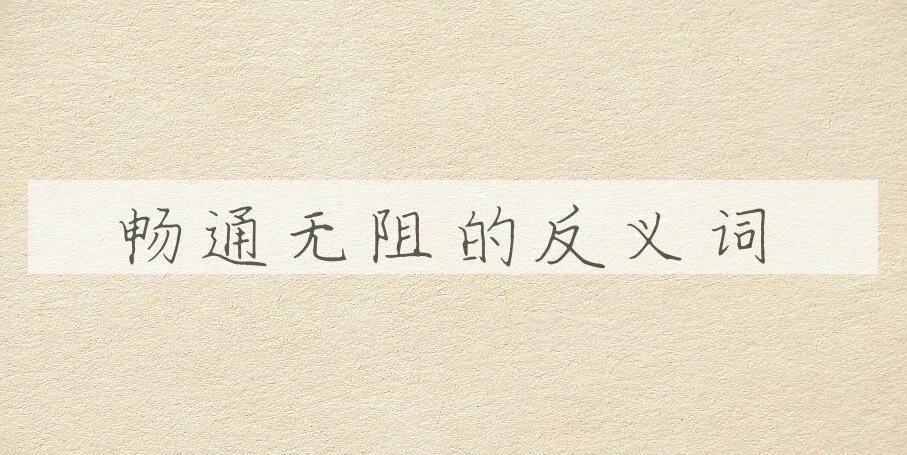 畅通无阻的反义词